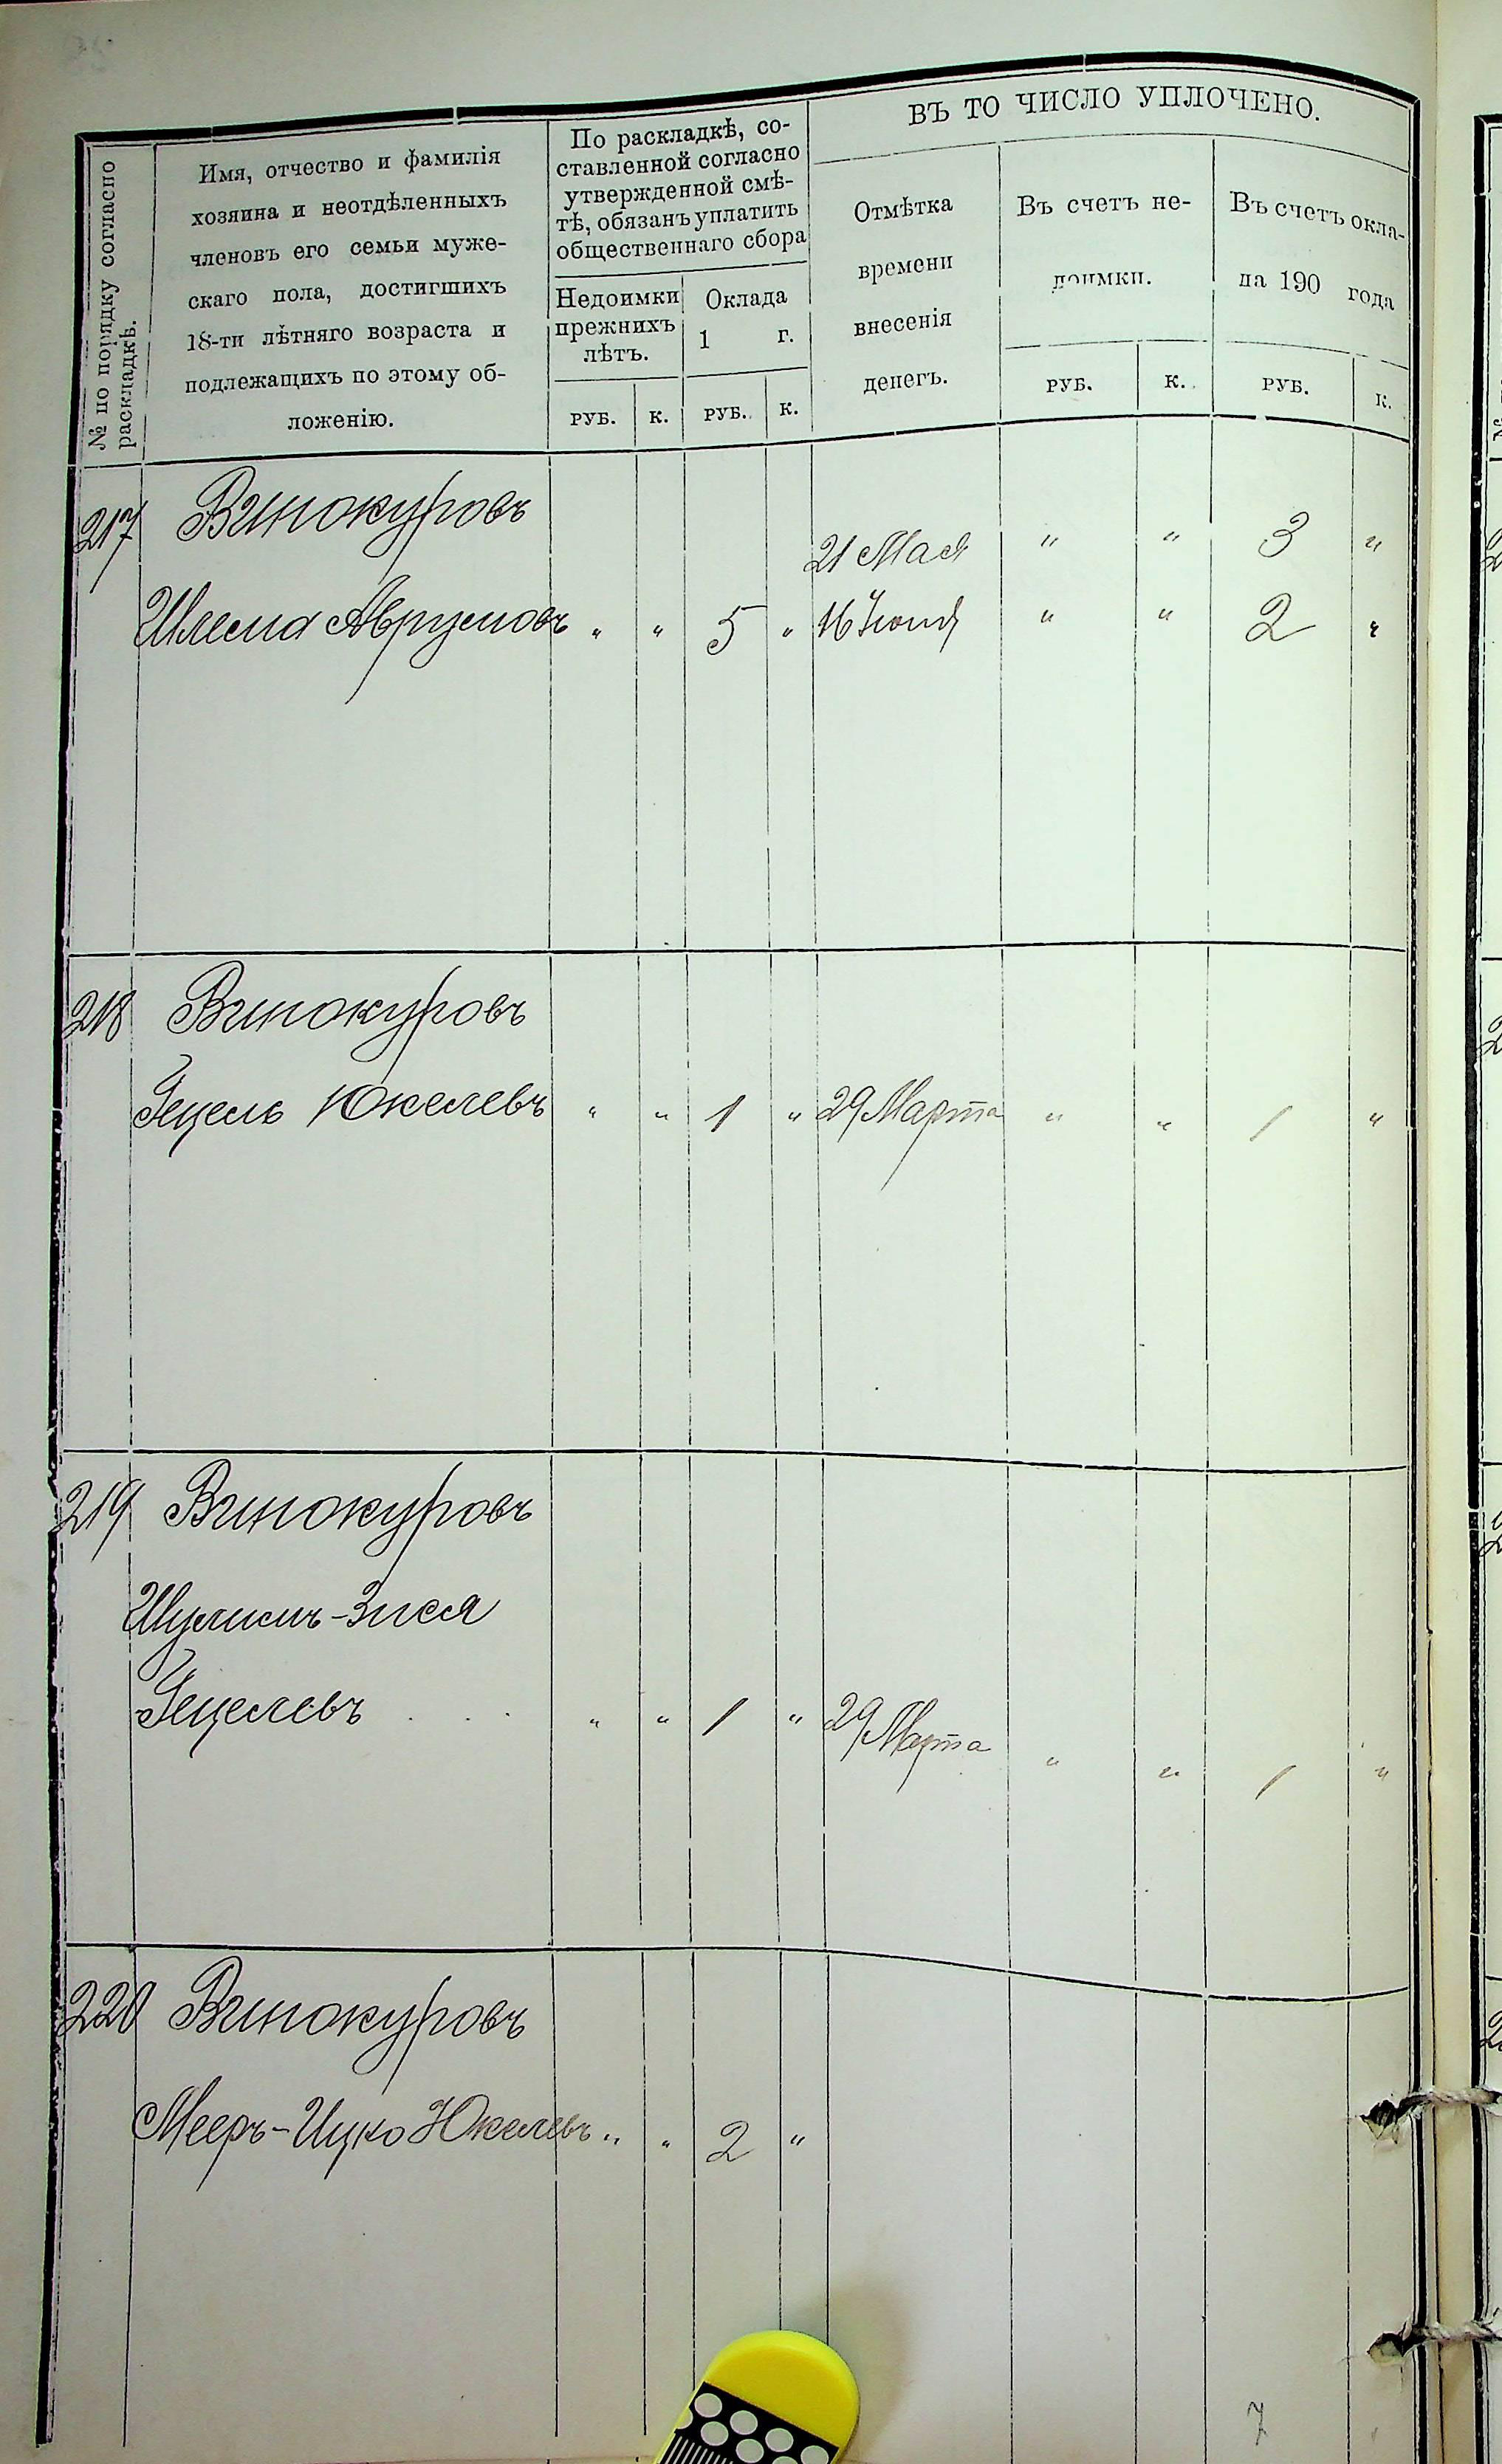 № по порядку согласно
раскладкѣ.
Имя, отчество и фамилія
хозяина и неотдѣленныхъ
членовъ его семьи муже-
скаго пола, достигшихъ
18-ти лѣтняго возраста и
подлежащихъ по этому об-
ложенію.
По раскладкѣ, со-
ставленной согласно
утвержденной смѣ-
тѣ, обязанъ уплатить
общественнаго сбора
Недоимки
прежнихъ
лѣтъ.
Оклада
1 г.
РУБ. К. РУБ. К.
ВЪ ТО ЧИСЛО УПЛОЧЕНО.
Отмѣтка
времени
внесенія
денегъ.
Въ счетъ не-
доимки.
Въ счетъ окла-
да 190 года
РУБ. К. РУБ. К.
217 Винокуровъ
21 Мая " " 3 "
Шлема Аврумовъ " " 5 " 16 Іюня " " 2 "
218 Винокуровъ
Гецель Юкелевъ " " 1 " 29 Марта " " 1 "
219 Винокуровъ
Шулимъ-Зися
Гецелевъ . . . " " 1 " 29 Марта " " 1 "
220 Винокуровъ
Мееръ-Ицко Юкелевъ " " 2 "
7